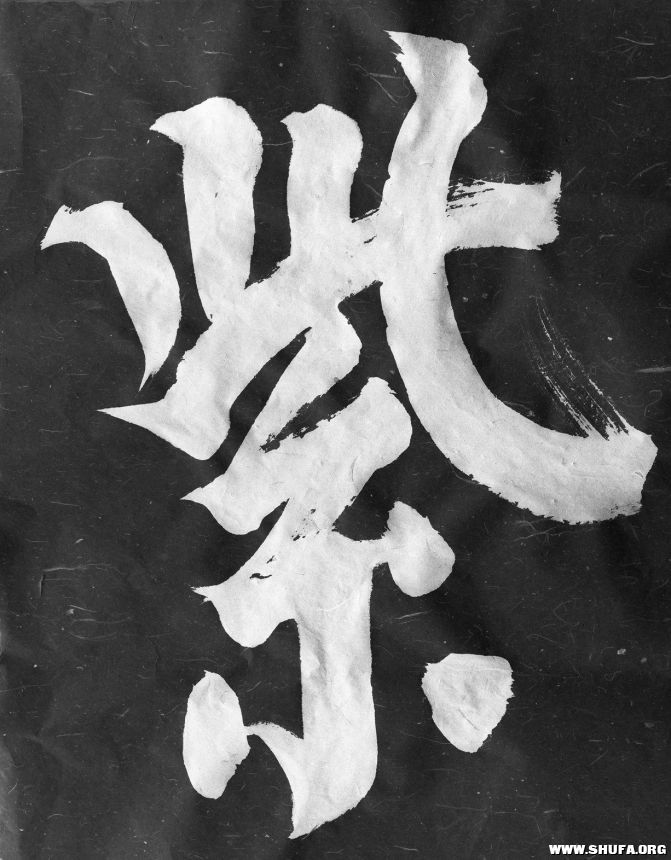 紫
WWW.SHUFA.ORG